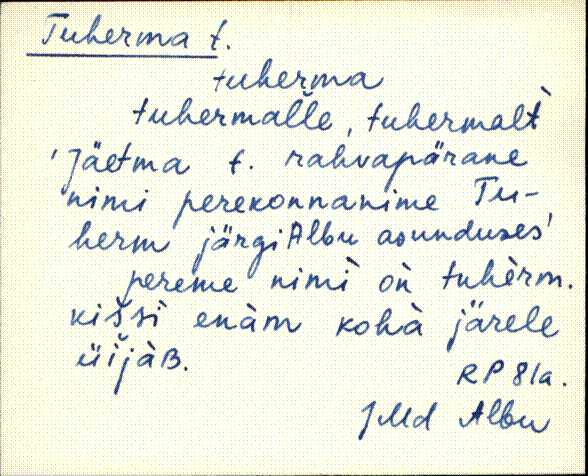 Tuherma t.
tuherma
tuhermal̆l̆e, tuhermal̀t̀
'Jäetma t. rahvapärane
nimi perekonnanime Tu-
herm järgi Albu asunduses'
pereme nimì oǹ tuhèrm.
kišsì enàm kohà järele
üijàB.
RP 81a.
JMd Albu